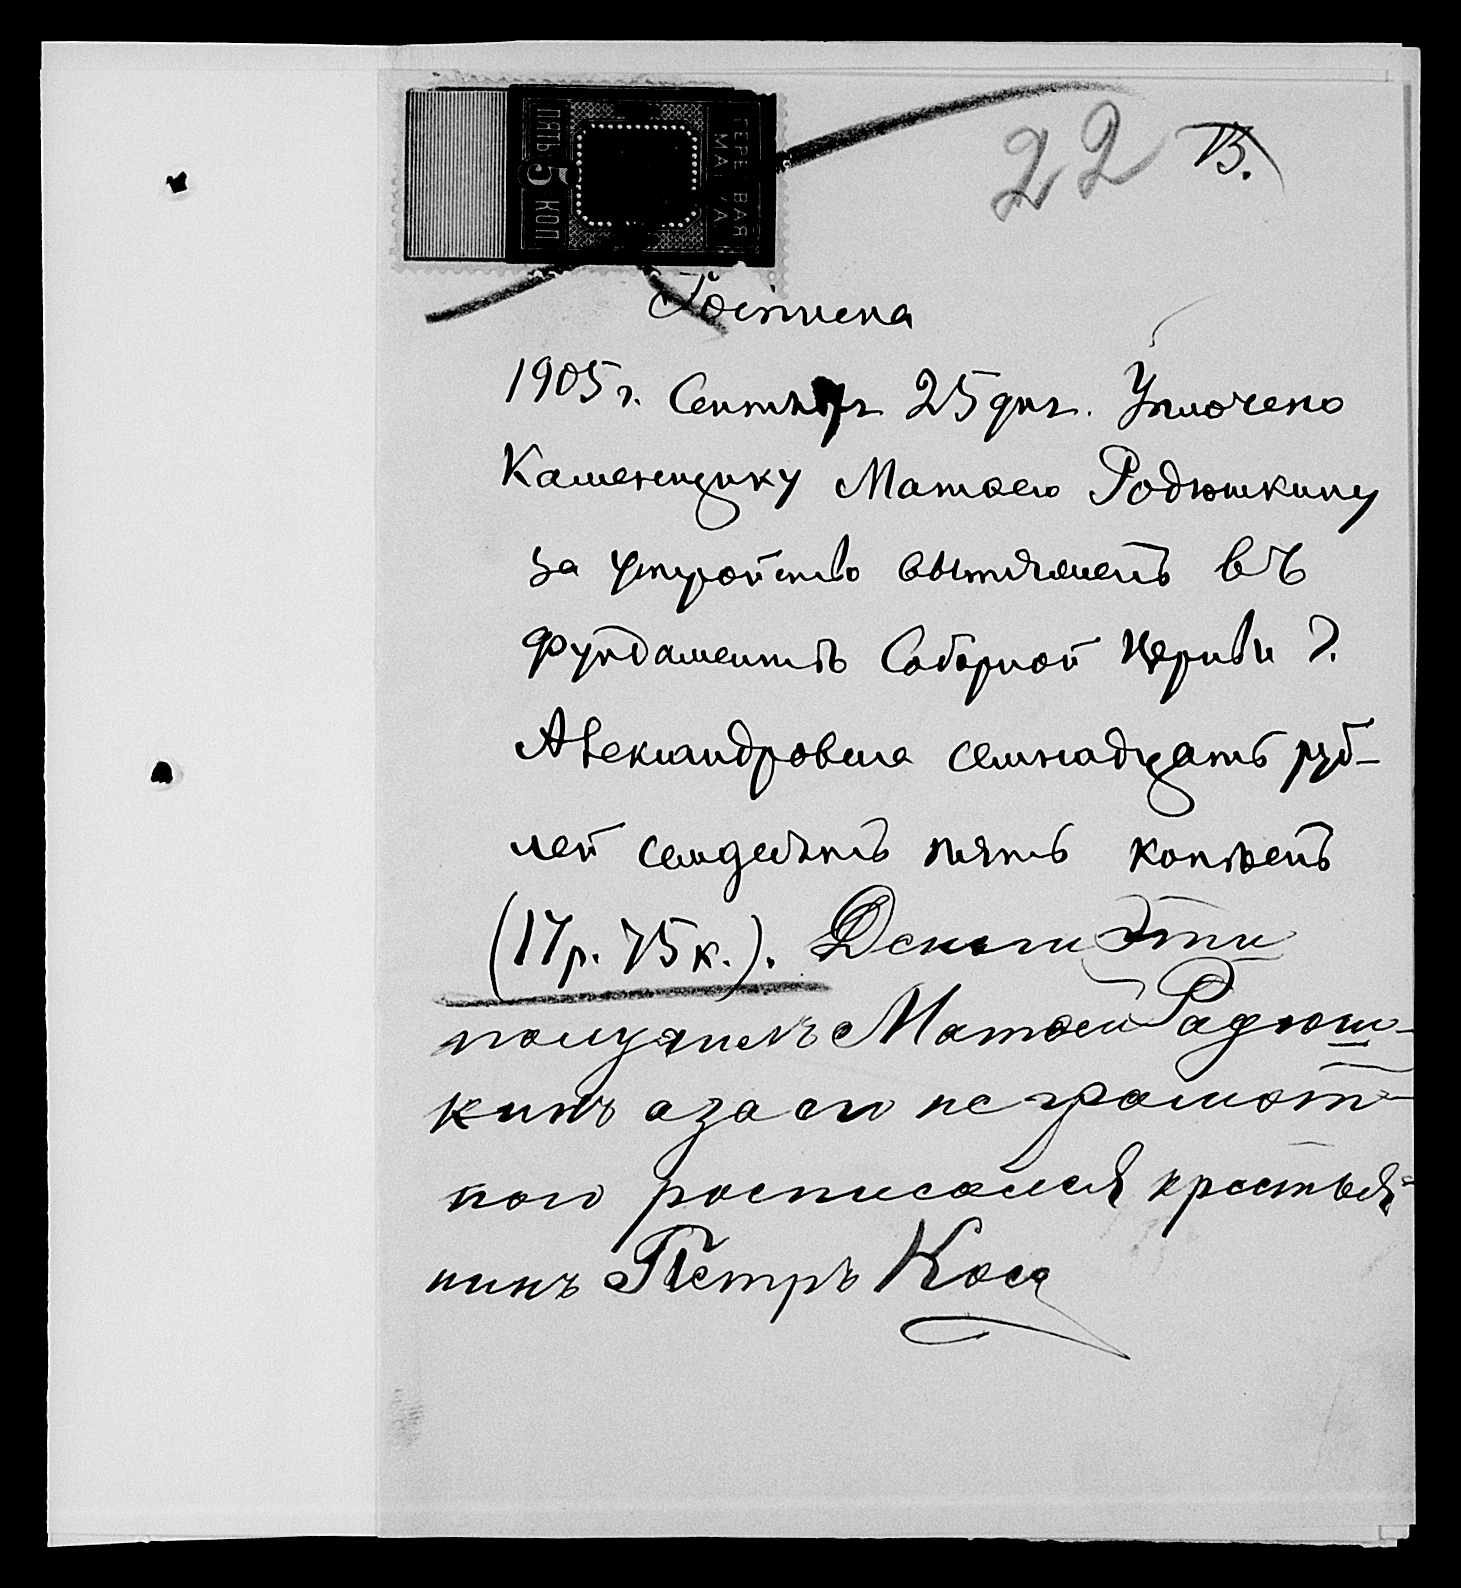 ПЯТЬ 5 КОП.
ГЕРБОВАЯ МАРКА
22
13.
Росписка
1905 г. Сентября 25 дня. Уплочено
Каменщику Матвею Родюшкину
за устройство вытяжекъ въ
фундаментѣ Соборной Церкви г.
Александровска семнадцать руб-
лей семдесятъ пять копѣекъ
(17 р. 75 к.). Деньги Эти
получилъ Матвей Радюш-
кинъ а за его не грамот-
ного росписался крестья-
нинъ Петръ Коса